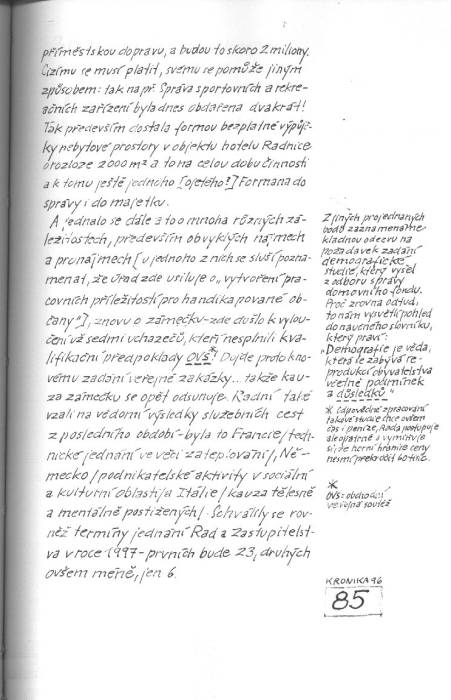 příměstskou dopravu, a budou to skoro 2 miliony.
Cizímu se musí platit, svému se pomůže jiným
způsobem: tak např. Správa sportovních a rekre-
ačních zařízení byla dnes obdařena dvakrát!
Tak především dostala formou bezplatné výpůjč-
ky nebytové prostory v objektu hotelu Radnice
o rozloze 2000 m² a to na celou dobu činnosti
a k tomu ještě jednoho [ojetého?] Formana do
správy i do majetku.
A jednalo se dále z to o mnoha různých zá-
ležitostech, především obvyklých nájmech
a pronájmech [u jednoho z nich se sluší pozna-
menat, že úřad zde usiluje o „vytvoření pra-
covních příležitostí pro handikapované ob-
čany"], znovu o zámečku - zde došlo k vylou-
čení už sedmi uchazečů, kteří nesplnili kva-
lifikační předpoklady OVS*! Dojde proto k no-
vému zadání veřejné zakázky... takže kau-
za zámečku se opět odsunuje. Radní také
vzali na vědomí výsledky služebních cest
z posledního období - byla to Francie /tech-
nické jednání ve věci zateplování/, Ně-
mecko /podnikatelské aktivity v sociální
a kulturní oblasti/ a Itálie /kauza tělesně
a mentálně postižených/. Schválily se rov-
něž termíny jednání Rad a Zastupitelst-
va v roce 1997 - prvních bude 23, druhých
ovšem méně, jen 6.
Z jiných projednaných
bodů zaznamenáme
kladnou odezvu na
požadavek zadání
demografické
studie, který vyšel
z odboru správy
domovního fondu.
Proč zrovna odtud,
to nám vysvětlí pohled
do naučného slovníku,
který praví:
„Demografie je věda,
která se zabývá re-
produkcí obyvatelstva
včetně podmínek
a důsledků."
* Odpovědné zpracování
takové studie chce ovšem
čas i peníze, Rada postupuje
ale opatrně a vymiňuje
si, že horní hranice ceny
nesmí překročit 60 tisíc.
*
OVS = obchodní
veřejná soutěž
KRONIKA 96
85